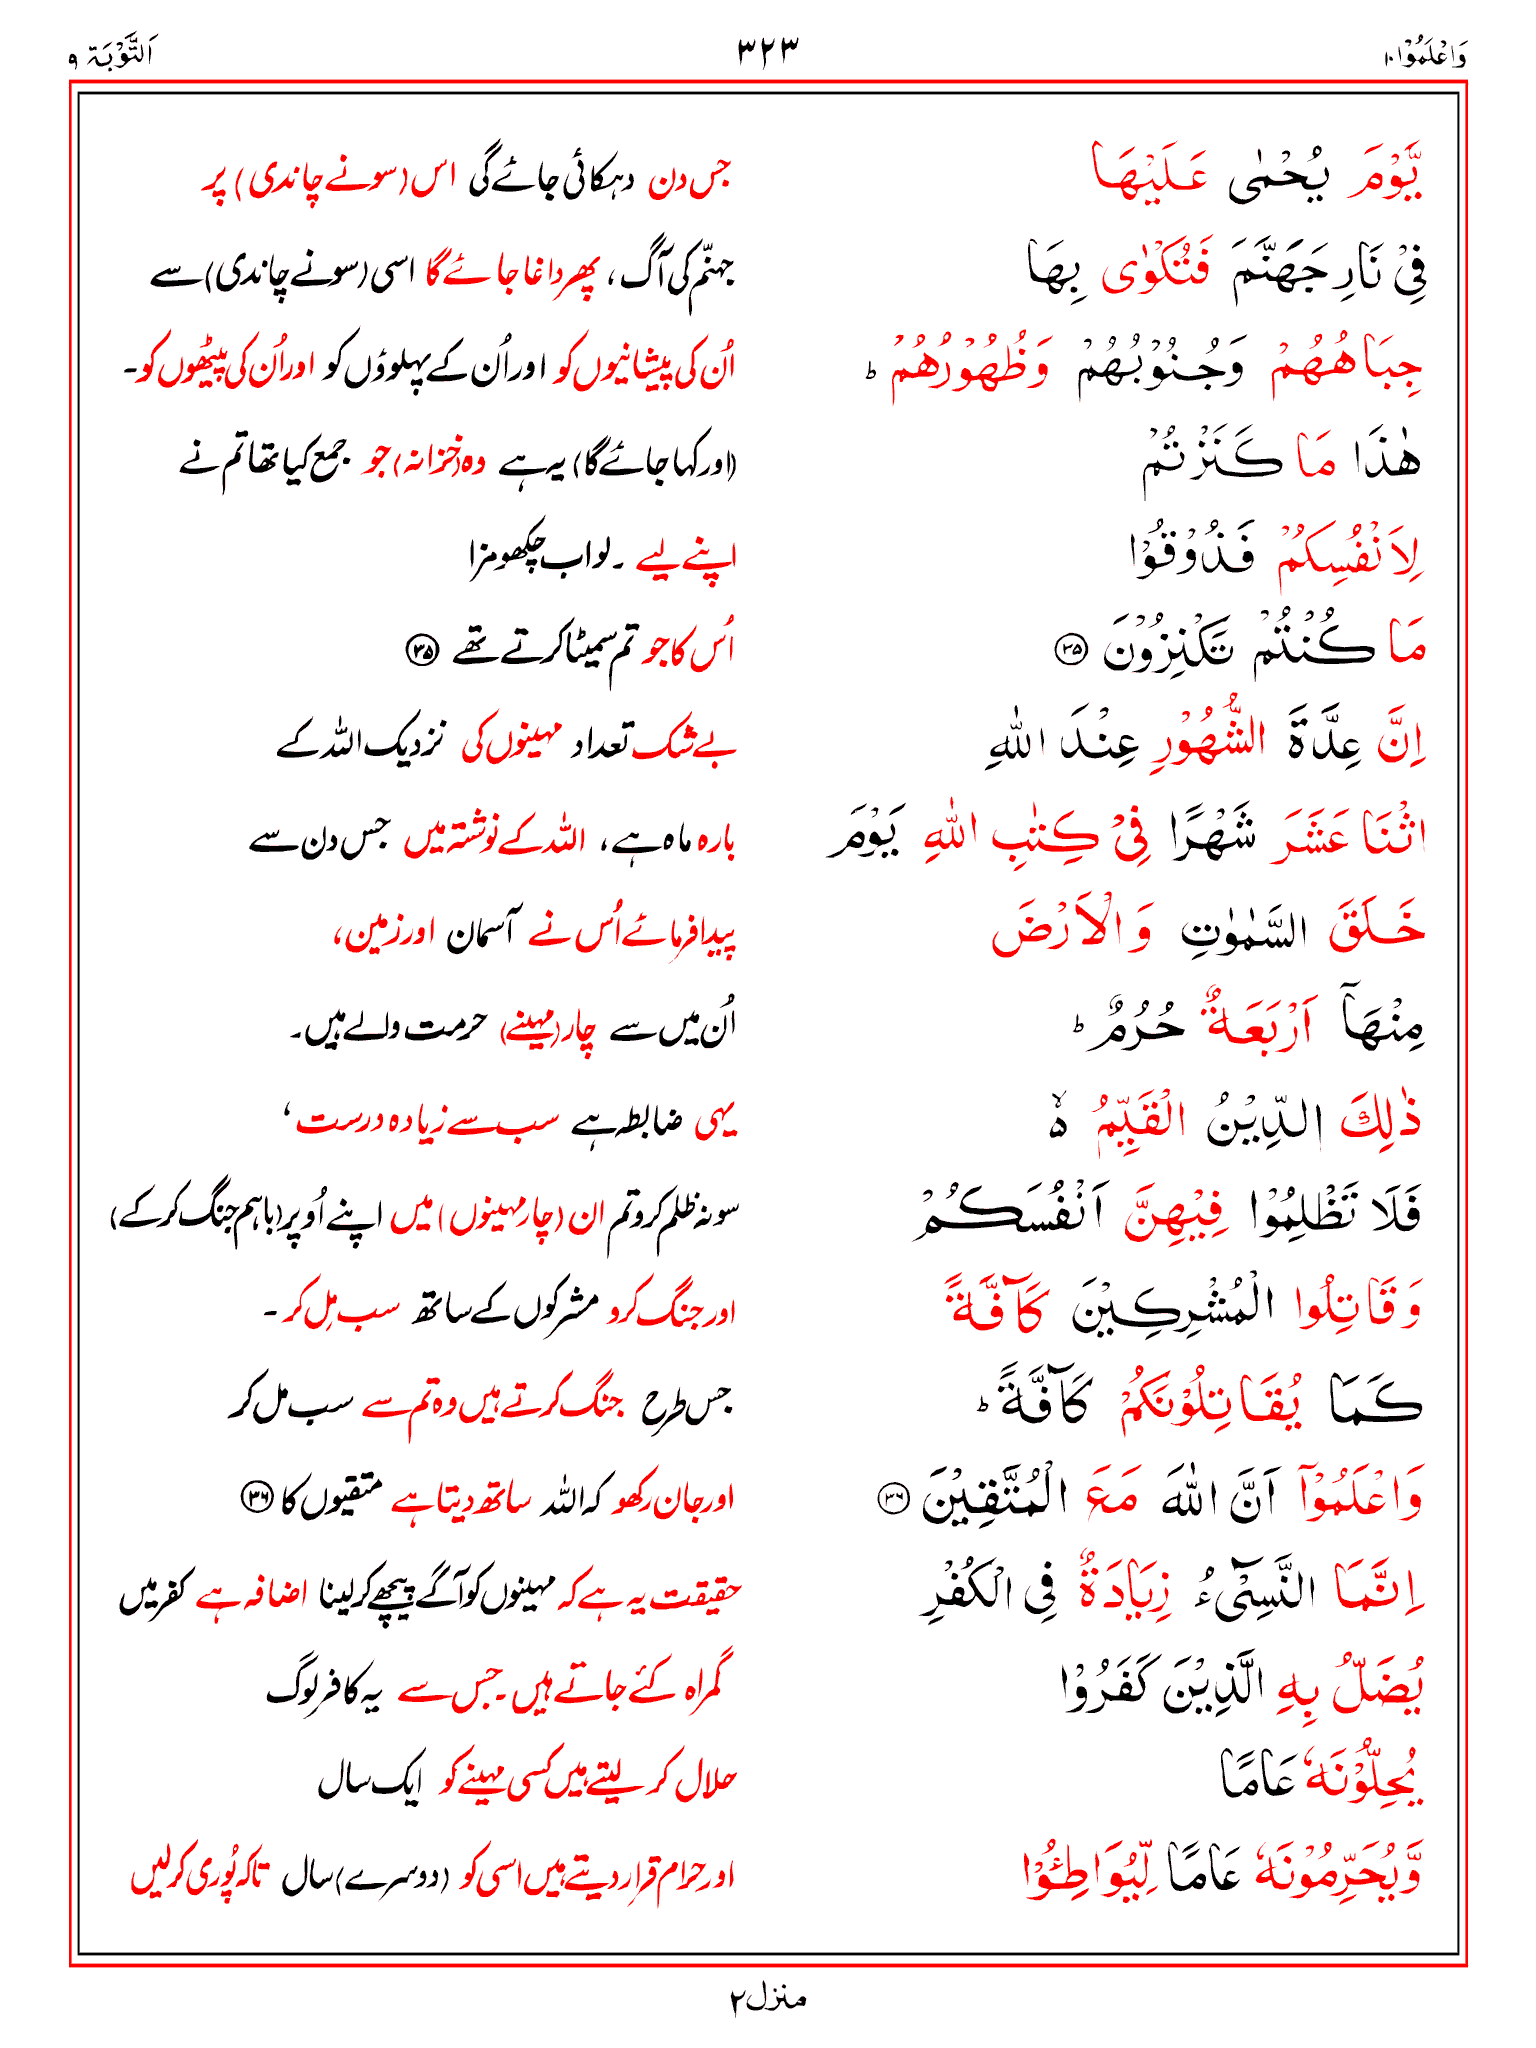 وَاعْلَمُوْا ۱۰ ۳۲۳ اَلتَّوْبَۃ ۹
يَّوْمَ يُحْمٰى عَلَيْهَا جس دن دہکائی جائے گی اس (سونے چاندی) پر
فِيْ نَارِ جَهَنَّمَ فَتُكْوٰى بِهَا جہنّم کی آگ، پھر داغا جائے گا اسی (سونے چاندی) سے
جِبَاهُهُمْ وَجُنُوْبُهُمْ وَظُهُوْرُهُمْ ؕ اُن کی پیشانیوں کو اور اُن کے پہلوؤں کو اور اُن کی پیٹھوں کو۔
هٰذَا مَا كَنَزْتُمْ (اور کہا جائے گا) یہ ہے وہ (خزانہ) جو جمع کیا تھا تم نے
لِاَنْفُسِكُمْ فَذُوْقُوْا اپنے لیے ۔ لو اب چکھو مزا
مَا كُنْتُمْ تَكْنِزُوْنَ ۳۵ اُس کا جو تم سمیٹا کرتے تھے ۳۵
اِنَّ عِدَّةَ الشُّهُوْرِ عِنْدَ اللّٰهِ بے شک تعداد مہینوں کی نزدیک اللہ کے
اثْنَا عَشَرَ شَهْرًا فِيْ كِتٰبِ اللّٰهِ يَوْمَ بارہ ماہ ہے، اللہ کے نوشتہ میں جس دن سے
خَلَقَ السَّمٰوٰتِ وَالْاَرْضَ پیدا فرمائے اُس نے آسمان اور زمین،
مِنْهَاۤ اَرْبَعَةٌ حُرُمٌ ؕ اُن میں سے چار (مہینے) حرمت والے ہیں۔
ذٰلِكَ الدِّيْنُ الْقَيِّمُ ۙ۵ یہی ضابطہ ہے سب سے زیادہ درست ،
فَلَا تَظْلِمُوْا فِيْهِنَّ اَنْفُسَكُمْ سو نہ ظلم کرو تم ان (چار مہینوں) میں اپنے اُوپر (باہم جنگ کر کے)
وَقَاتِلُوا الْمُشْرِكِيْنَ كَآفَّةً اور جنگ کرو مشرکوں کے ساتھ سب مِل کر ۔
كَمَا يُقَاتِلُوْنَكُمْ كَآفَّةً ؕ جس طرح جنگ کرتے ہیں وہ تم سے سب مل کر
وَاعْلَمُوْۤا اَنَّ اللّٰهَ مَعَ الْمُتَّقِيْنَ ۳۶ اور جان رکھو کہ اللہ ساتھ دیتا ہے متقیوں کا ۳۶
اِنَّمَا النَّسِيْٓءُ زِيَادَةٌ فِي الْكُفْرِ حقیقت یہ ہے کہ مہینوں کو آگے پیچھے کر لینا اضافہ ہے کفر میں
يُضَلُّ بِهِ الَّذِيْنَ كَفَرُوْا گمراہ کئے جاتے ہیں۔ جس سے یہ کافر لوگ
يُحِلُّوْنَهٗ عَامًا حلال کر لیتے ہیں کسی مہینے کو ایک سال
وَّيُحَرِّمُوْنَهٗ عَامًا لِّيُوَاطِـُٔوْا اور حرام قرار دیتے ہیں اسی کو (دوسرے) سال تاکہ پُوری کر لیں
منزل ۲